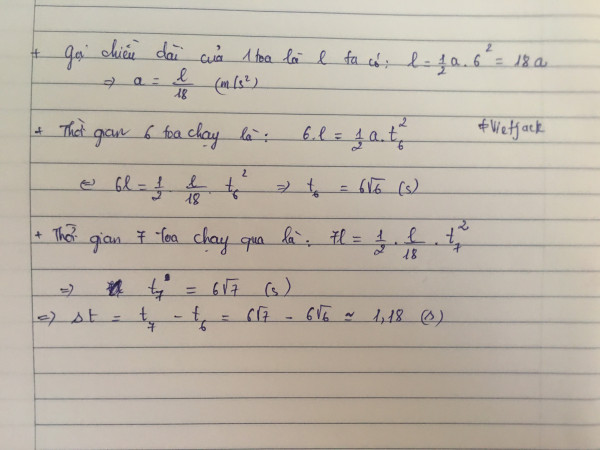 + Gọi chiều dài của 1 toa là l ta có: l = 1/2 a . 6² = 18a
⇒ a = l/18 (m/s²)
+ Thời gian 6 toa chạy là: 6.l = 1/2 a . t₆²
#VietJack
⇔ 6l = 1/2 . l/18 . t₆² ⇒ t₆ = 6√6 (s)
+ Thời gian 7 toa chạy qua là: 7l = 1/2 . l/18 . t₇²
⇒ t₇ = 6√7 (s)
⇔ Δt = t₇ - t₆ = 6√7 - 6√6 ≃ 1,18 (s)